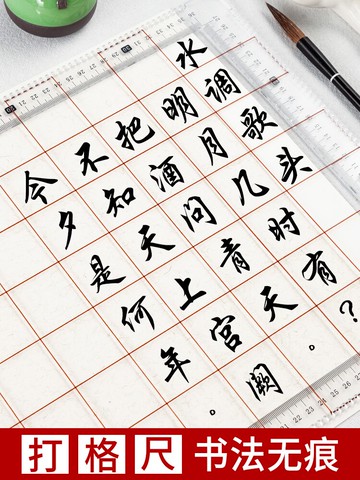 水调歌头
明月几时有?
把酒问青天。
不知天上宫阙
今夕是何年。
打格尺 书法无痕